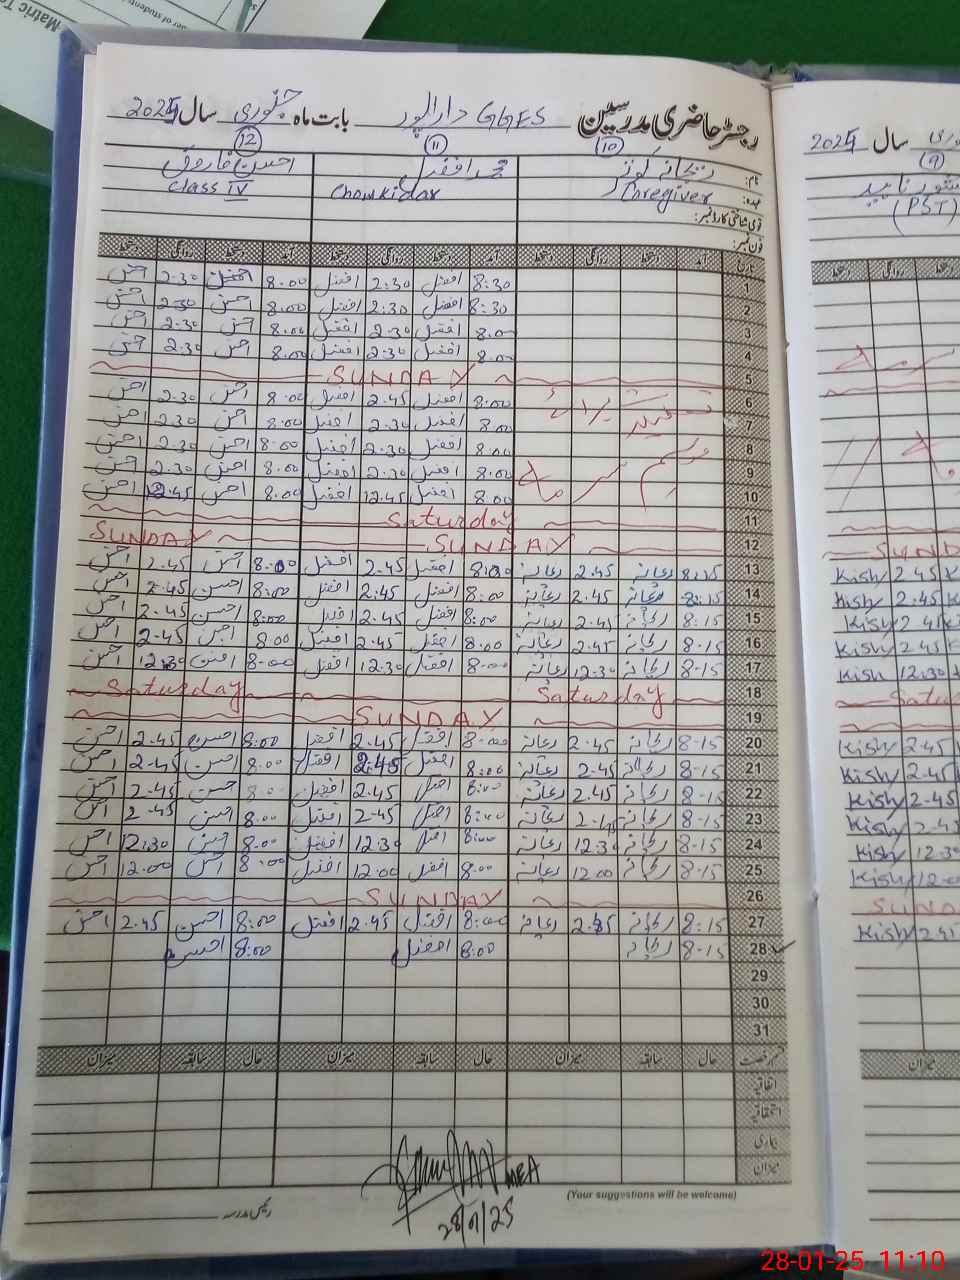 Matric
رجسٹر حاضری مدرسین GGES دارالپور بابت ماہ جنوری سال 2025
نام: (10) ریحانہ کوثر (11) محمد افضل (12) احسن فاروق
عہدہ: Caregiver Chowkidar Class IV
قومی شناختی کارڈ نمبر:
فون نمبر:
تاریخ آمد دستخط روانگی دستخط آمد دستخط روانگی دستخط آمد دستخط روانگی دستخط
1 8:30 افضل 2:30 افضل 8.00 2.30 احسن
2 8:30 افضل 2:30 افضل 8.00 احسن 2.30 احسن
3 8.00 افضل 2.30 افضل 8.00 احسن 2.30 احسن
4 8.00 افضل 2.30 افضل 8.00 احسن 2.30 احسن
5 SUNDAY
6 8:00 افضل 2.45 افضل 8.00 احسن 2.30 احسن
7 8.00 افضل 2.30 افضل 8.00 احسن 2.30 احسن
8 8.00 افضل 2.30 افضل 8.00 احسن 2.30 احسن
9 8.00 افضل 2.30 افضل 8.00 احسن 2.30 احسن
10 8.00 افضل 12.45 افضل 8.00 احسن 12.45 احسن
موسم سرما
11 Saturday
12 SUNDAY SUNDAY
13 8:15 ریحانہ 2.45 ریحانہ 8:00 افضل 2.45 افضل 8.00 احسن 2.45 احسن
14 8:15 ریحانہ 2.45 ریحانہ 8:00 افضل 2:45 افضل 8:00 احسن 2.45 احسن
15 8:15 ریحانہ 2.45 ریحانہ 8:00 افضل 2.45 افضل 8:00 احسن 2.45 احسن
16 8.15 ریحانہ 2.45 ریحانہ 8.00 افضل 2.45 افضل 8.00 احسن 2.45 احسن
17 8-15 ریحانہ 12.30 ریحانہ 8-00 افضل 12.30 افضل 8-00 احسن 12.30 احسن
18 Saturday Saturday
19 SUNDAY
20 8-15 ریحانہ 2.45 ریحانہ 8:00 افضل 2.45 افضل 8:00 احسن 2.45 احسن
21 8-15 ریحانہ 2.45 ریحانہ 8:00 افضل 2:45 افضل 8:00 احسن 2.45 احسن
22 8-15 ریحانہ 2.45 ریحانہ 8:00 افضل 2.45 افضل 8:00 احسن 2.45 احسن
23 8-15 ریحانہ 2.45 ریحانہ 8:00 افضل 2-45 افضل 8.00 احسن 2-45 احسن
24 8-15 ریحانہ 12.30 ریحانہ 8:00 افضل 12.30 افضل 8.00 احسن 12.30 احسن
25 8-15 ریحانہ 12.00 ریحانہ 8:00 افضل 12.00 افضل 8:00 احسن 12.00 احسن
26 SUNDAY
27 8:15 ریحانہ 2.45 ریحانہ 8:00 افضل 2.45 افضل 8:00 احسن 2.45 احسن
28 8-15 ریحانہ 8:00 افضل 8:00 احسن
29
30
31
قسم رخصت حال سابقہ میزان حال سابقہ میزان حال سابقہ میزان
اتفاقیہ
استحقاقیہ
بیماری
میزان
MEA
28/1/25
رئیس مدرسہ
(Your suggestions will be welcome)
سال 2025
(9)
(PST)
دستخط روانگی دستخط
SUND
Kishy 2.45
Kishy 2.45
Kishy 2.45
Kishy 2.45
Kish 12.30
Satu
SUN
Kishy 2.45
Kishy 2.45
Kishy 2.45
Kishy 2.45
Kishy 12.30
Kishy 12.0
SUND
Kishy 2.45
میزان
28-01-25 11:10